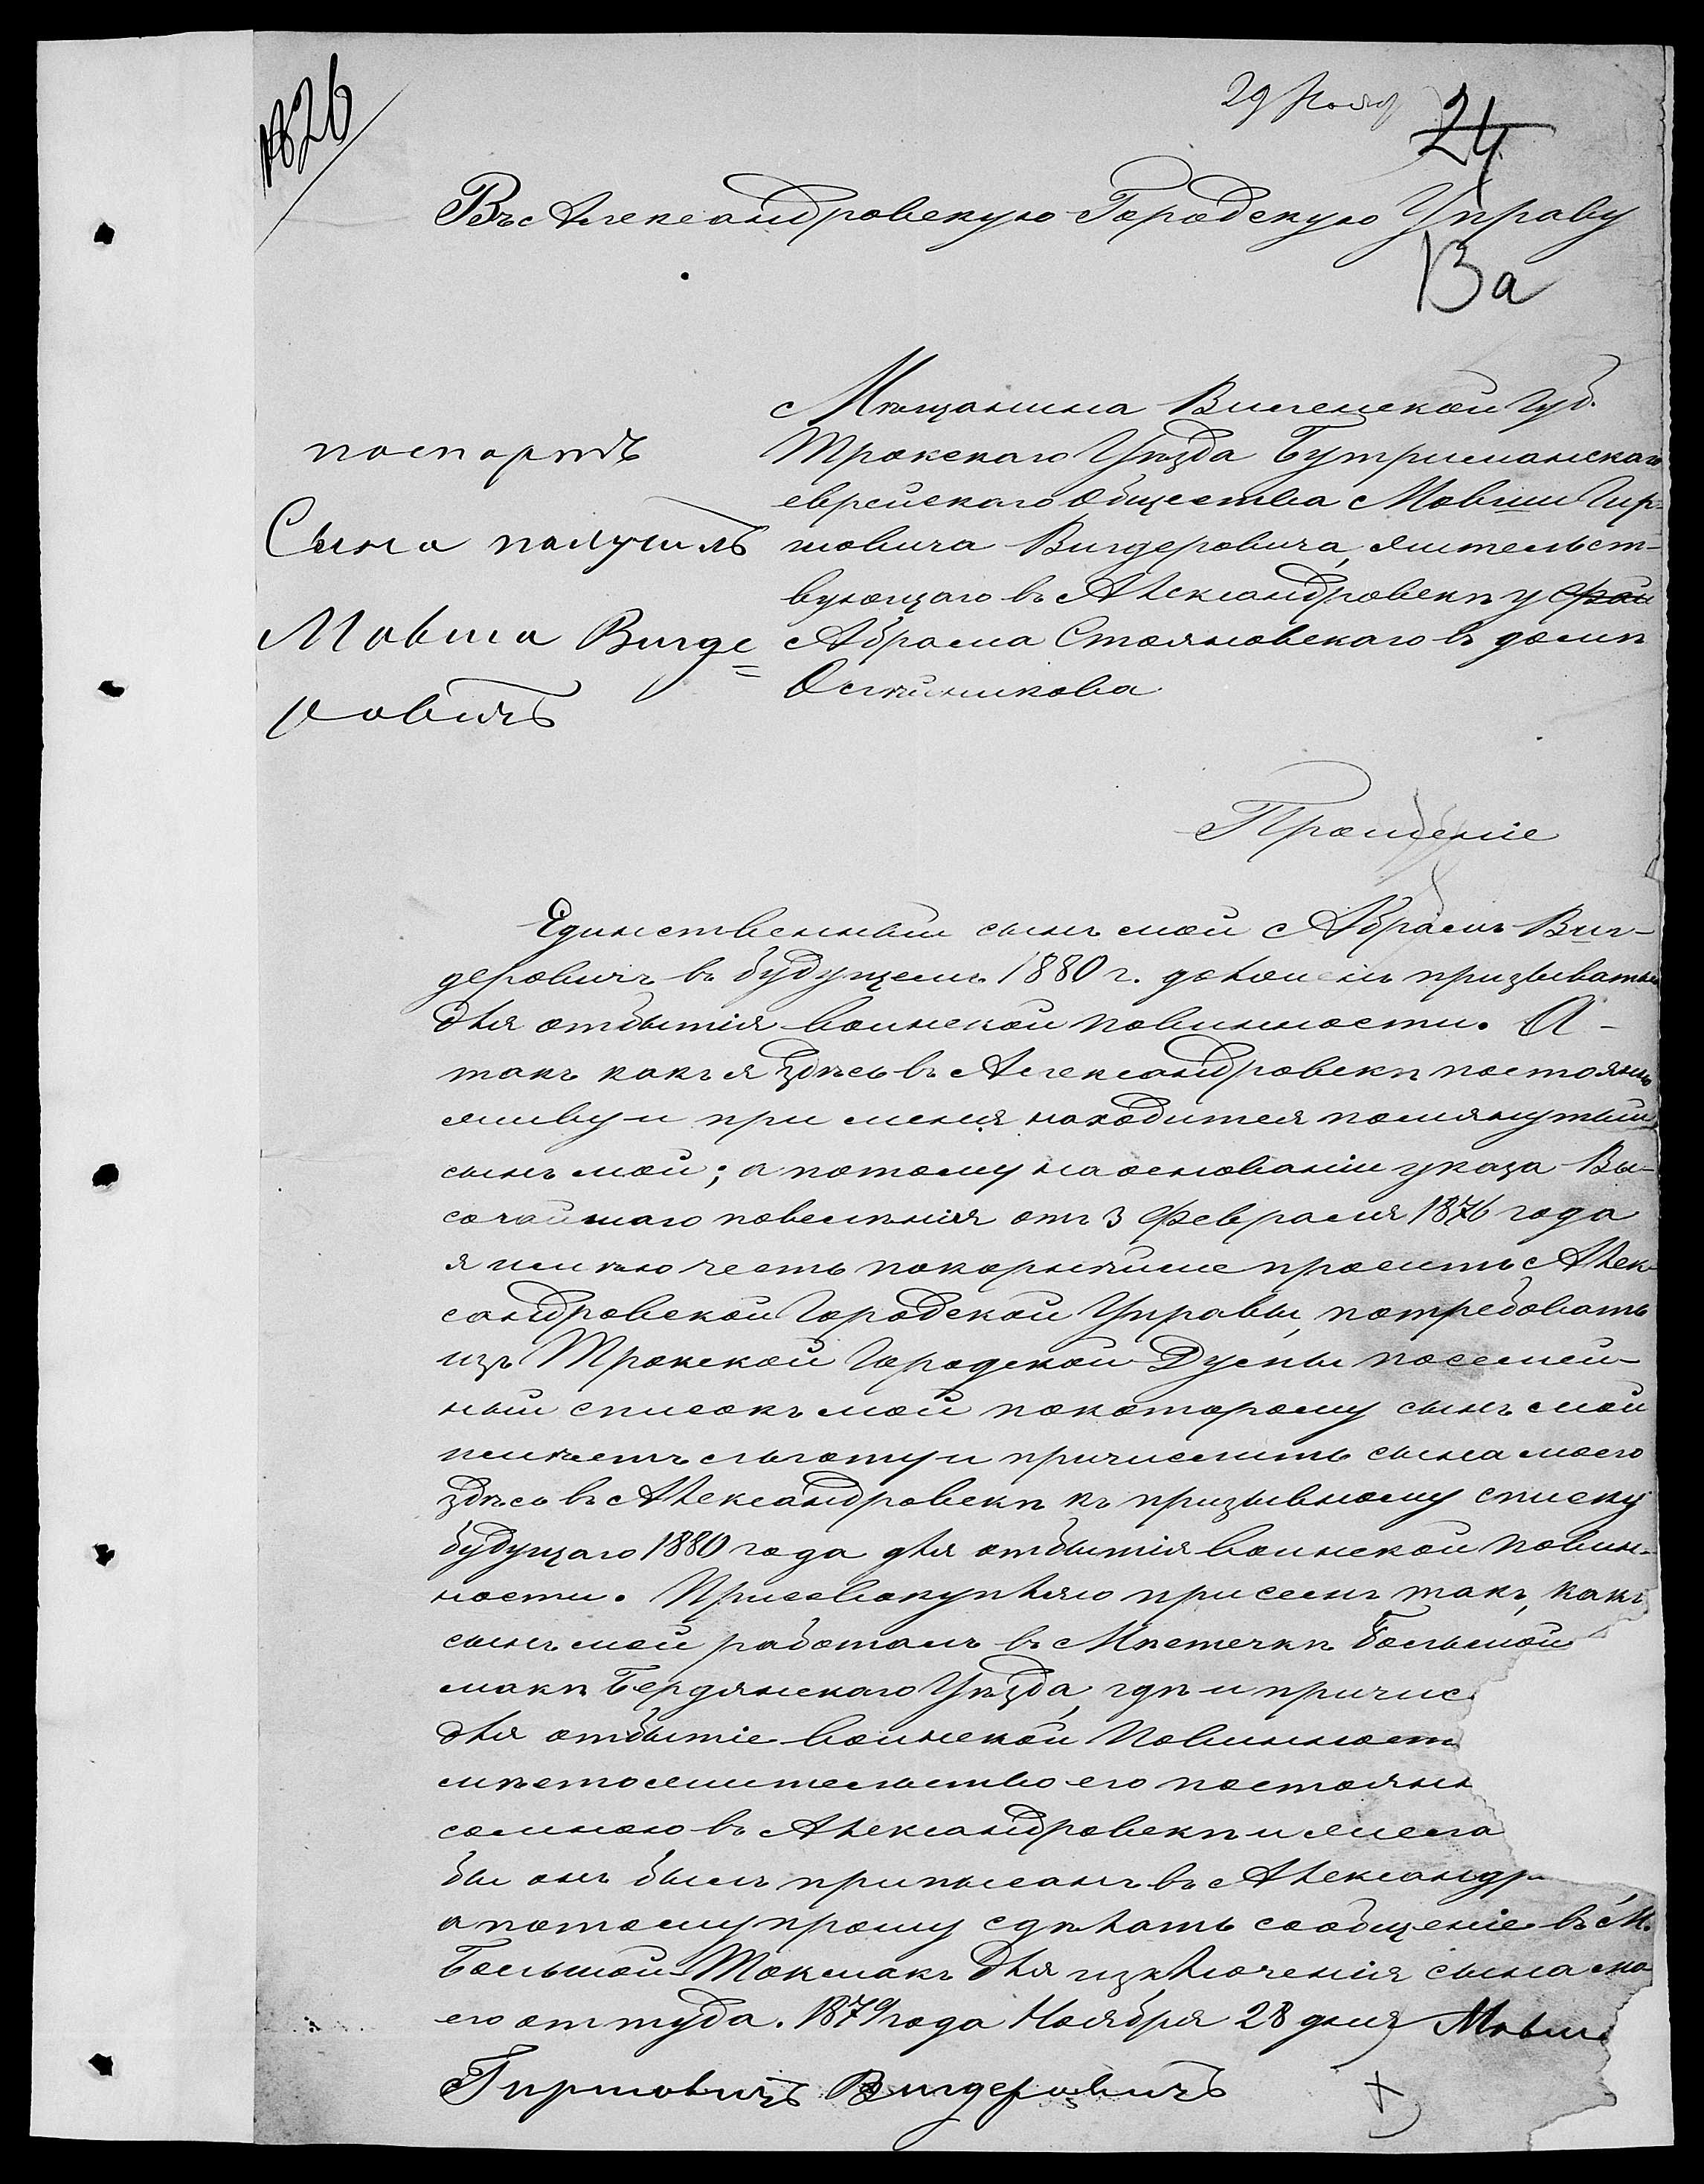 № 826
29 Нояб
24
Въ Александровскую Городскую Управу
13а
Мѣщанина Виленской Губ.
Трокскаго Уѣзда Бутриманскаго
еврейскаго Общества Мовши Гир-
шовича Вигдеровича, жительст-
вующаго въ Александровскѣ у
Абрама Стояновскаго въ домѣ
паспортъ
Сына получилъ
Мовша Вигде=
ровичъ
Прошеніе
Единственный сынъ мой Абрамъ Виг-
деровичъ въ будущемъ 1880 г. долженъ призыватся
для отбытія воинской повинности. А -
такъ какъ я здѣсь въ Александровскѣ постоянно
живу и при меня находится помянутый
сынъ мой; а потому на основаніи указа Вы-
сочайшаго повелѣнія отъ 3 Февраля 1876 года
я имѣю честь покорнѣйше просить Алек-
сандровской Городской Управы, потребовать
изъ Трокской Городской Думы посемей-
ный списокъ мой покоторому сынъ мой
имѣетъ льготу и причислить сына моего
здѣсь въ Александровскѣ къ призывному списку
будущаго 1880 года для отбытія воинской повин-
ности. Присовокупляю присемъ такъ, какъ
сынъ мой работалъ въ Мѣстечкѣ Большой
макѣ Бердянскаго Уѣзда, гдѣ и причис
для отбытіе воинской Повинност
мѣстожительство его постоянн
самною въ Александровскѣ и жела
бы онъ былъ приписанъ въ Александр
а потому прошу сдѣлать сообщеніе въ М.
Большой-Токмакъ для изключенія сына мо
его оттуда. 1879 года Ноября 28 дня Мовш
Гиршовичъ Вигдеровичъ